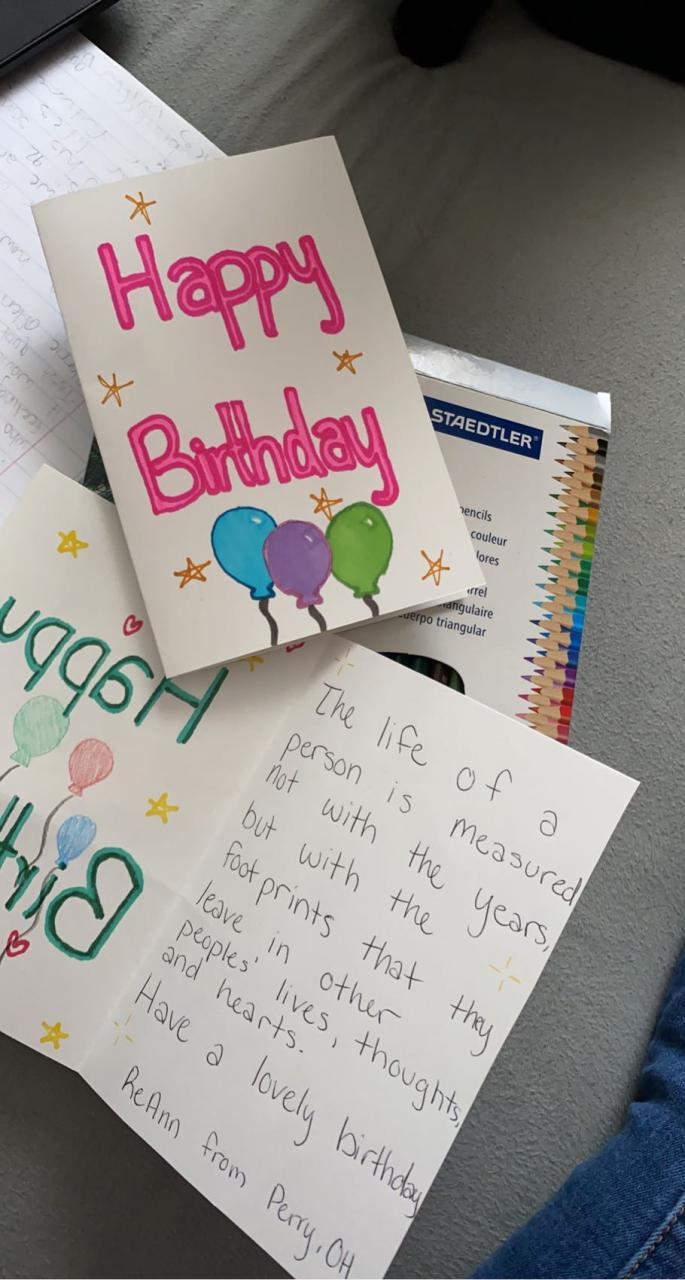 Happy
Birthday
STAEDTLER
pencils
couleur
lores
rrel
iangulaire
cuerpo triangular
Happy
Birt
The life of a
person is measured
not with the years,
but with the
footprints that they
leave in other
peoples' lives, thoughts,
and hearts.
Have a lovely birthday
ReAnn from Perry, OH